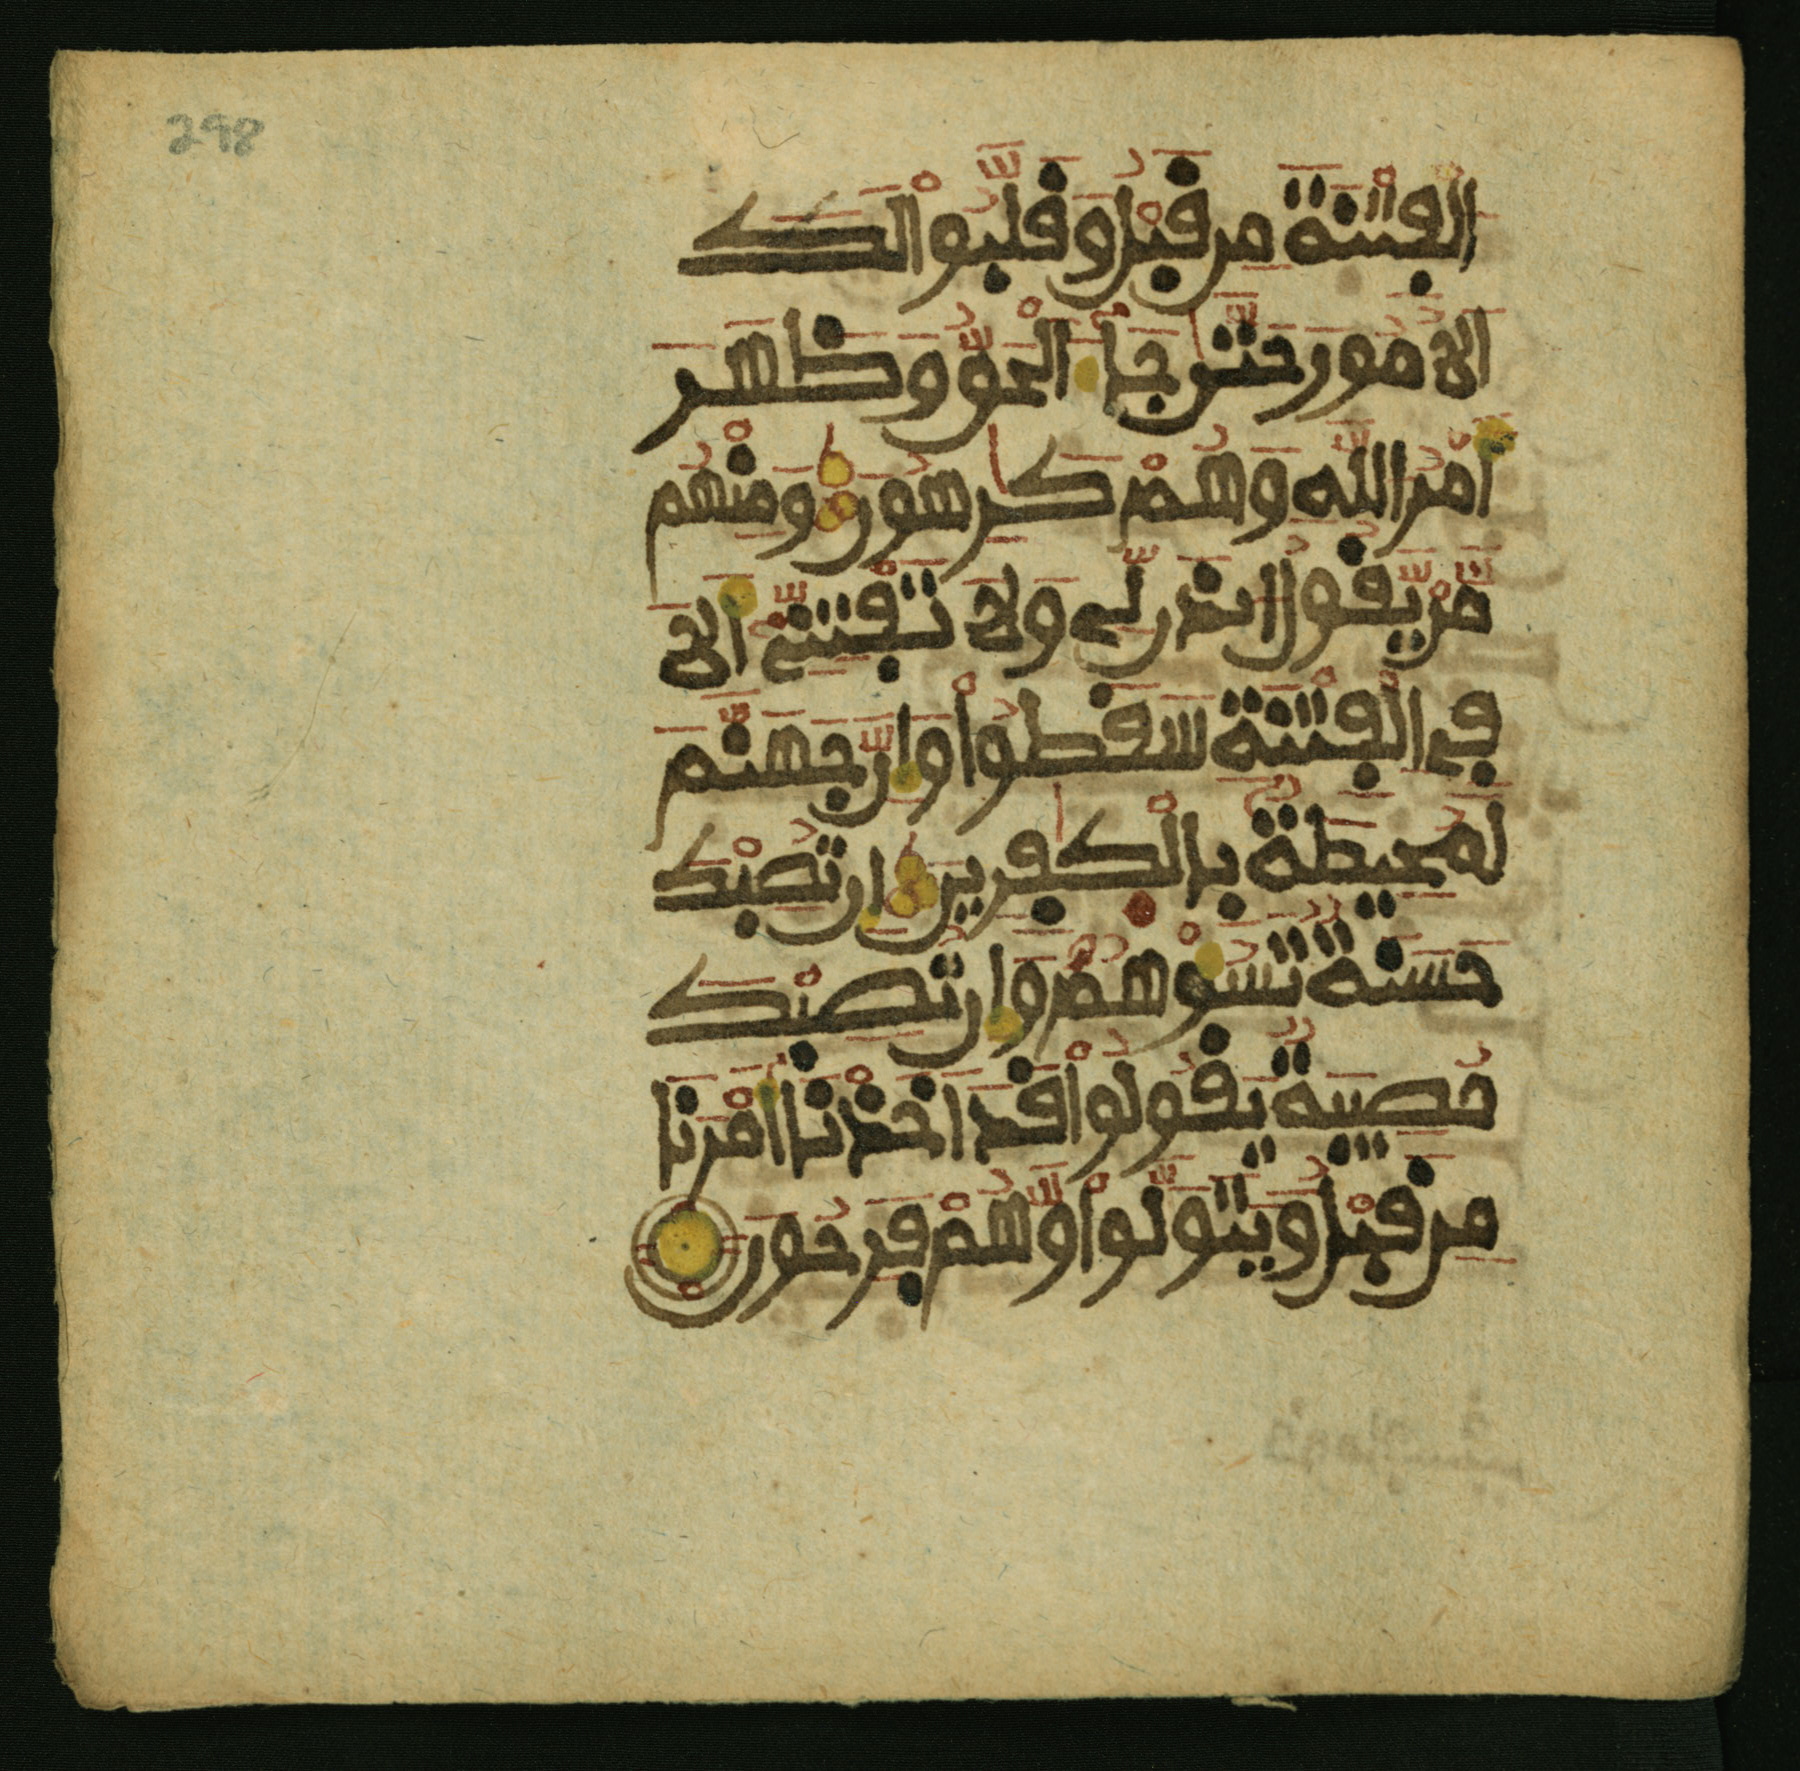 298
الْفِتْنَةَ مِن قَبْلُ وَقَلَّبُواْ لَكَ
الاُمُورَ حَتَّىٰ جَآءَ الْحَقُّ وَظَهَرَ
أَمْرُ اللَّهِ وَهُمْ كَٰرِهُونَ وَمِنْهُم
مَّنْ يَّقُولُ ائذَن لِّے وَلَا تَفْتِنِّے أَلَا
فِے الْفِتْنَةِ سَقَطُواْ وَإِنَّ جَهَنَّمَ
لَمُحِيطَةٌ بِالْكَٰفِرِينَ إِن تُصِبْكَ
حَسَنَةٌ تَسُؤْهُمْ وَإِن تُصِبْكَ
مُصِيبَةٌ يَقُولُواْ قَدَ اَخَذْنَا أَمْرَنَا
مِن قَبْلُ وَيَتَوَلَّواْ وَّهُمْ فَرِحُونَ